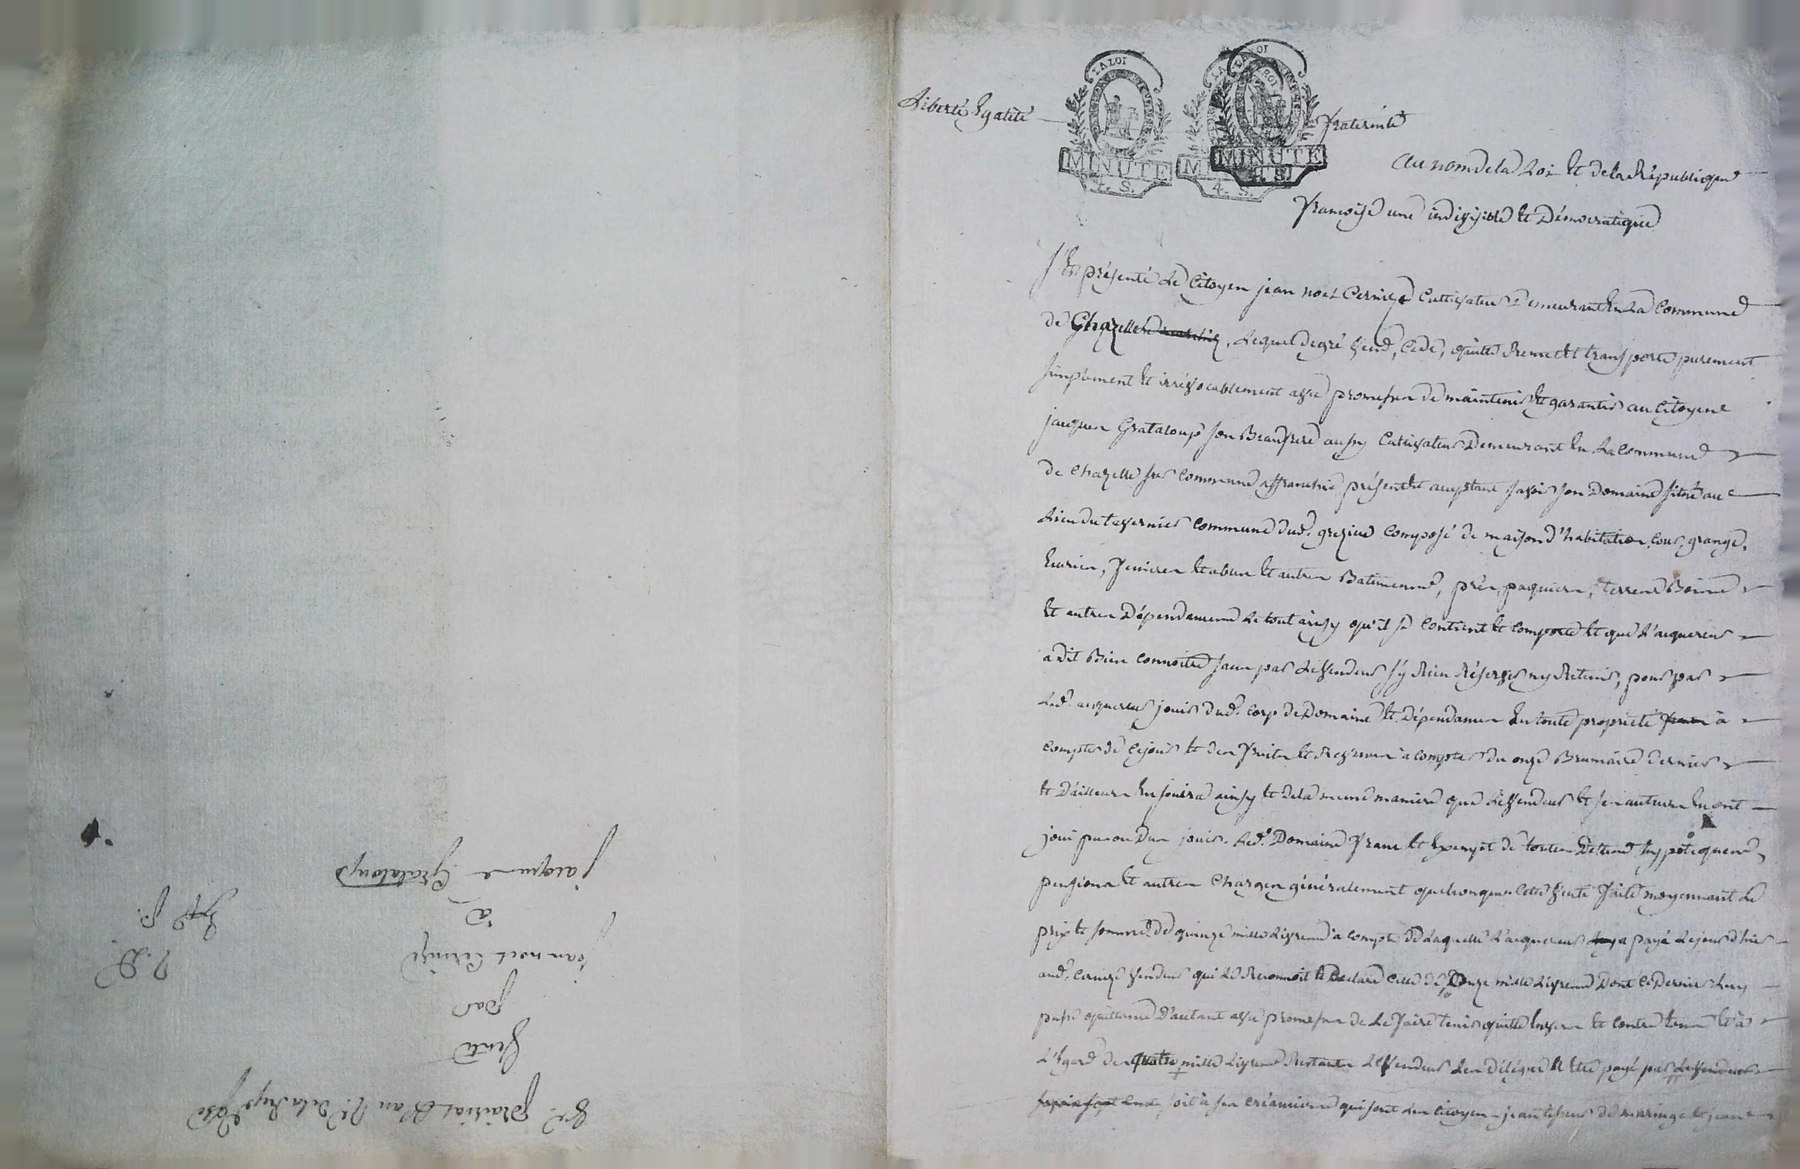 Liberté Egalité
LA LOI
MINUTE
4. S.
LA LOI
MINUTE
4. S.
Fraternité
au nom de la Loi et de la République
françoise une indivisible et Démocratique
Est présenté le Citoyen jean noel Cerisze Cultivateur Demeurant En La Commune
de Chazelle, Lequel de gré vend, cede, quitte Remet et transporte purement
simplement et irrévocablement avec promesse de maintenir et garantir au Citoyen
jacques Grataloup son Beaufrere aussy Cultivateur Demeurant En La Commune
de Chazelle sur Commune affranchie présent et acceptant savoir son Domaine situé au
Lieu du tavernier Commune dud. grezieu composé de maison d'habitation, cour, grange,
Ecuries, fenieres Etables et autres Batiments, prés, paquiers, terres Bois
et autres Dépendances Le tout ainsy qu'il se contient et comporte et que L'acquereur
a dit Bien Connoitre sans par Le Vendeur s'y Rien Réserver ny Retenir, pour par
Led. acquereur jouir dud. Corp de Domaine et Dépendances En toute proprieté à
compter de ce jour et des fruits et Revenus a compter du onze Brumaire dernier
et D'ailleurs En jouira ainsy et de la meme maniere que Le Vendeur et ses auteurs En ont
joui pu ou Du jouir. Led. Domaine franc et Exempt de toutes Dettes hypotèques,
pensions et autres Charges généralement quelconques cette Vente faite moyennant Le
prix et somme de quinze mille Livres à compte de Laquelle L'acquereur a payé Le jour d'hier
aud. Cerisze Vendeur qui Le Reconnoit et Declare celle de onze mille Livres Dont Ce Dernier Luy
passe quittance D'autant avec promesse de Le faire tenir quitte Envers et Contre tous et à
L'égard des quatre mille Livres Restantes Le Vendeur Les délègue Et Etre payé par
soit à ses créanciers qui sont Les Citoyens jean de maringe et jean
prairial an de la Rep.
Vente
par
jean noel Cerisze
à
jacques Grataloup